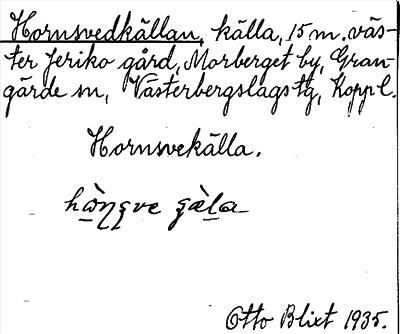 Hornsvedkällan, källa, 15 m. väs-
ter Jeriko gård, Morberget by, Gran-
gärde sn, Västerbergslags tg, Koppl.
Hornsvekälla.
Otto Blixt 1935.